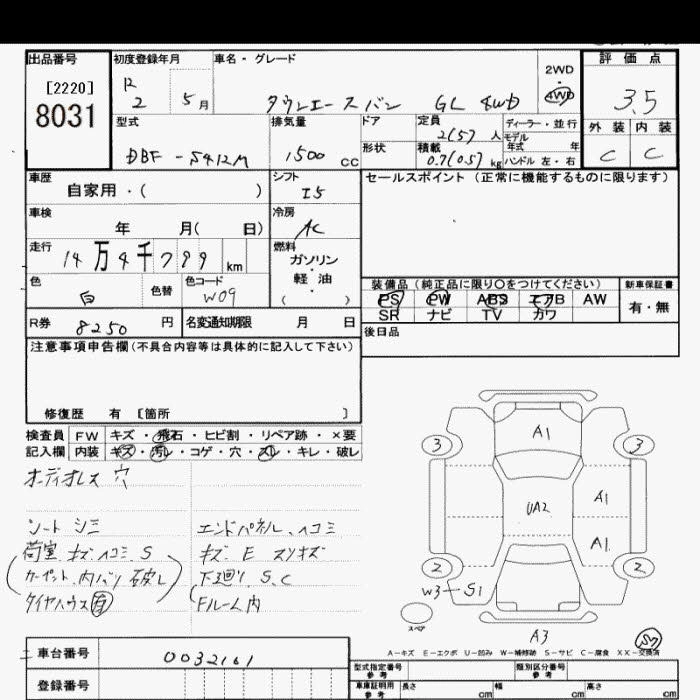 出品番号
[2220]
8031
初度登録年月
12
2 5月
車名・グレード
タウンエースバン GL 4WD
2WD
・
4WD
評価点
3.5
外装 内装
C C
型式
DBF-S412M
排気量
1500 cc
ドア
形状
定員
2(5)人
積載
0.7(0.5)kg
ディーラー・並行
モデル
年式 年
ハンドル 左・右
車歴
自家用・( )
シフト
I5
セールスポイント(正常に機能するものに限ります)
車検
年 月( 日)
冷房
AC
走行
14万4千799km
燃料
ガソリン
・
軽油
( )
色
白
色替
色コード
W09
装備品(純正品に限り○をつけてください)
新車保証書
PS PW ABS エアB AW
SR ナビ TV カワ
有・無
R券 8250円
名変通知期限 月 日
後日品
注意事項申告欄(不具合内容等は具体的に記入して下さい)
修復歴 有 [箇所 ]
検査員
記入欄
FW キズ・飛石・ヒビ割・リペア跡・×要
内装 キズ・汚レ・コゲ・穴・スレ・キレ・破レ
オーディオレス 穴
シート シミ
荷室 キズ ヘコミ S
カーペット、内バリ 破レ
タイヤハウス 有
エンドパネル、ヘコミ
キズ E スリキズ
下廻り S、C
Fルーム内
A1
3 3
UA2
A1
A1
2 2
W3 S1
スペア
A3
S7
A-キズ E-エクボ U-凹み W-補修跡 S-サビ C-腐食 XX-交換済
車台番号
0032161
登録番号
型式指定番号
参考
類別区分番号
参考
車庫証明用
参考
長さ cm
幅 cm
高さ cm